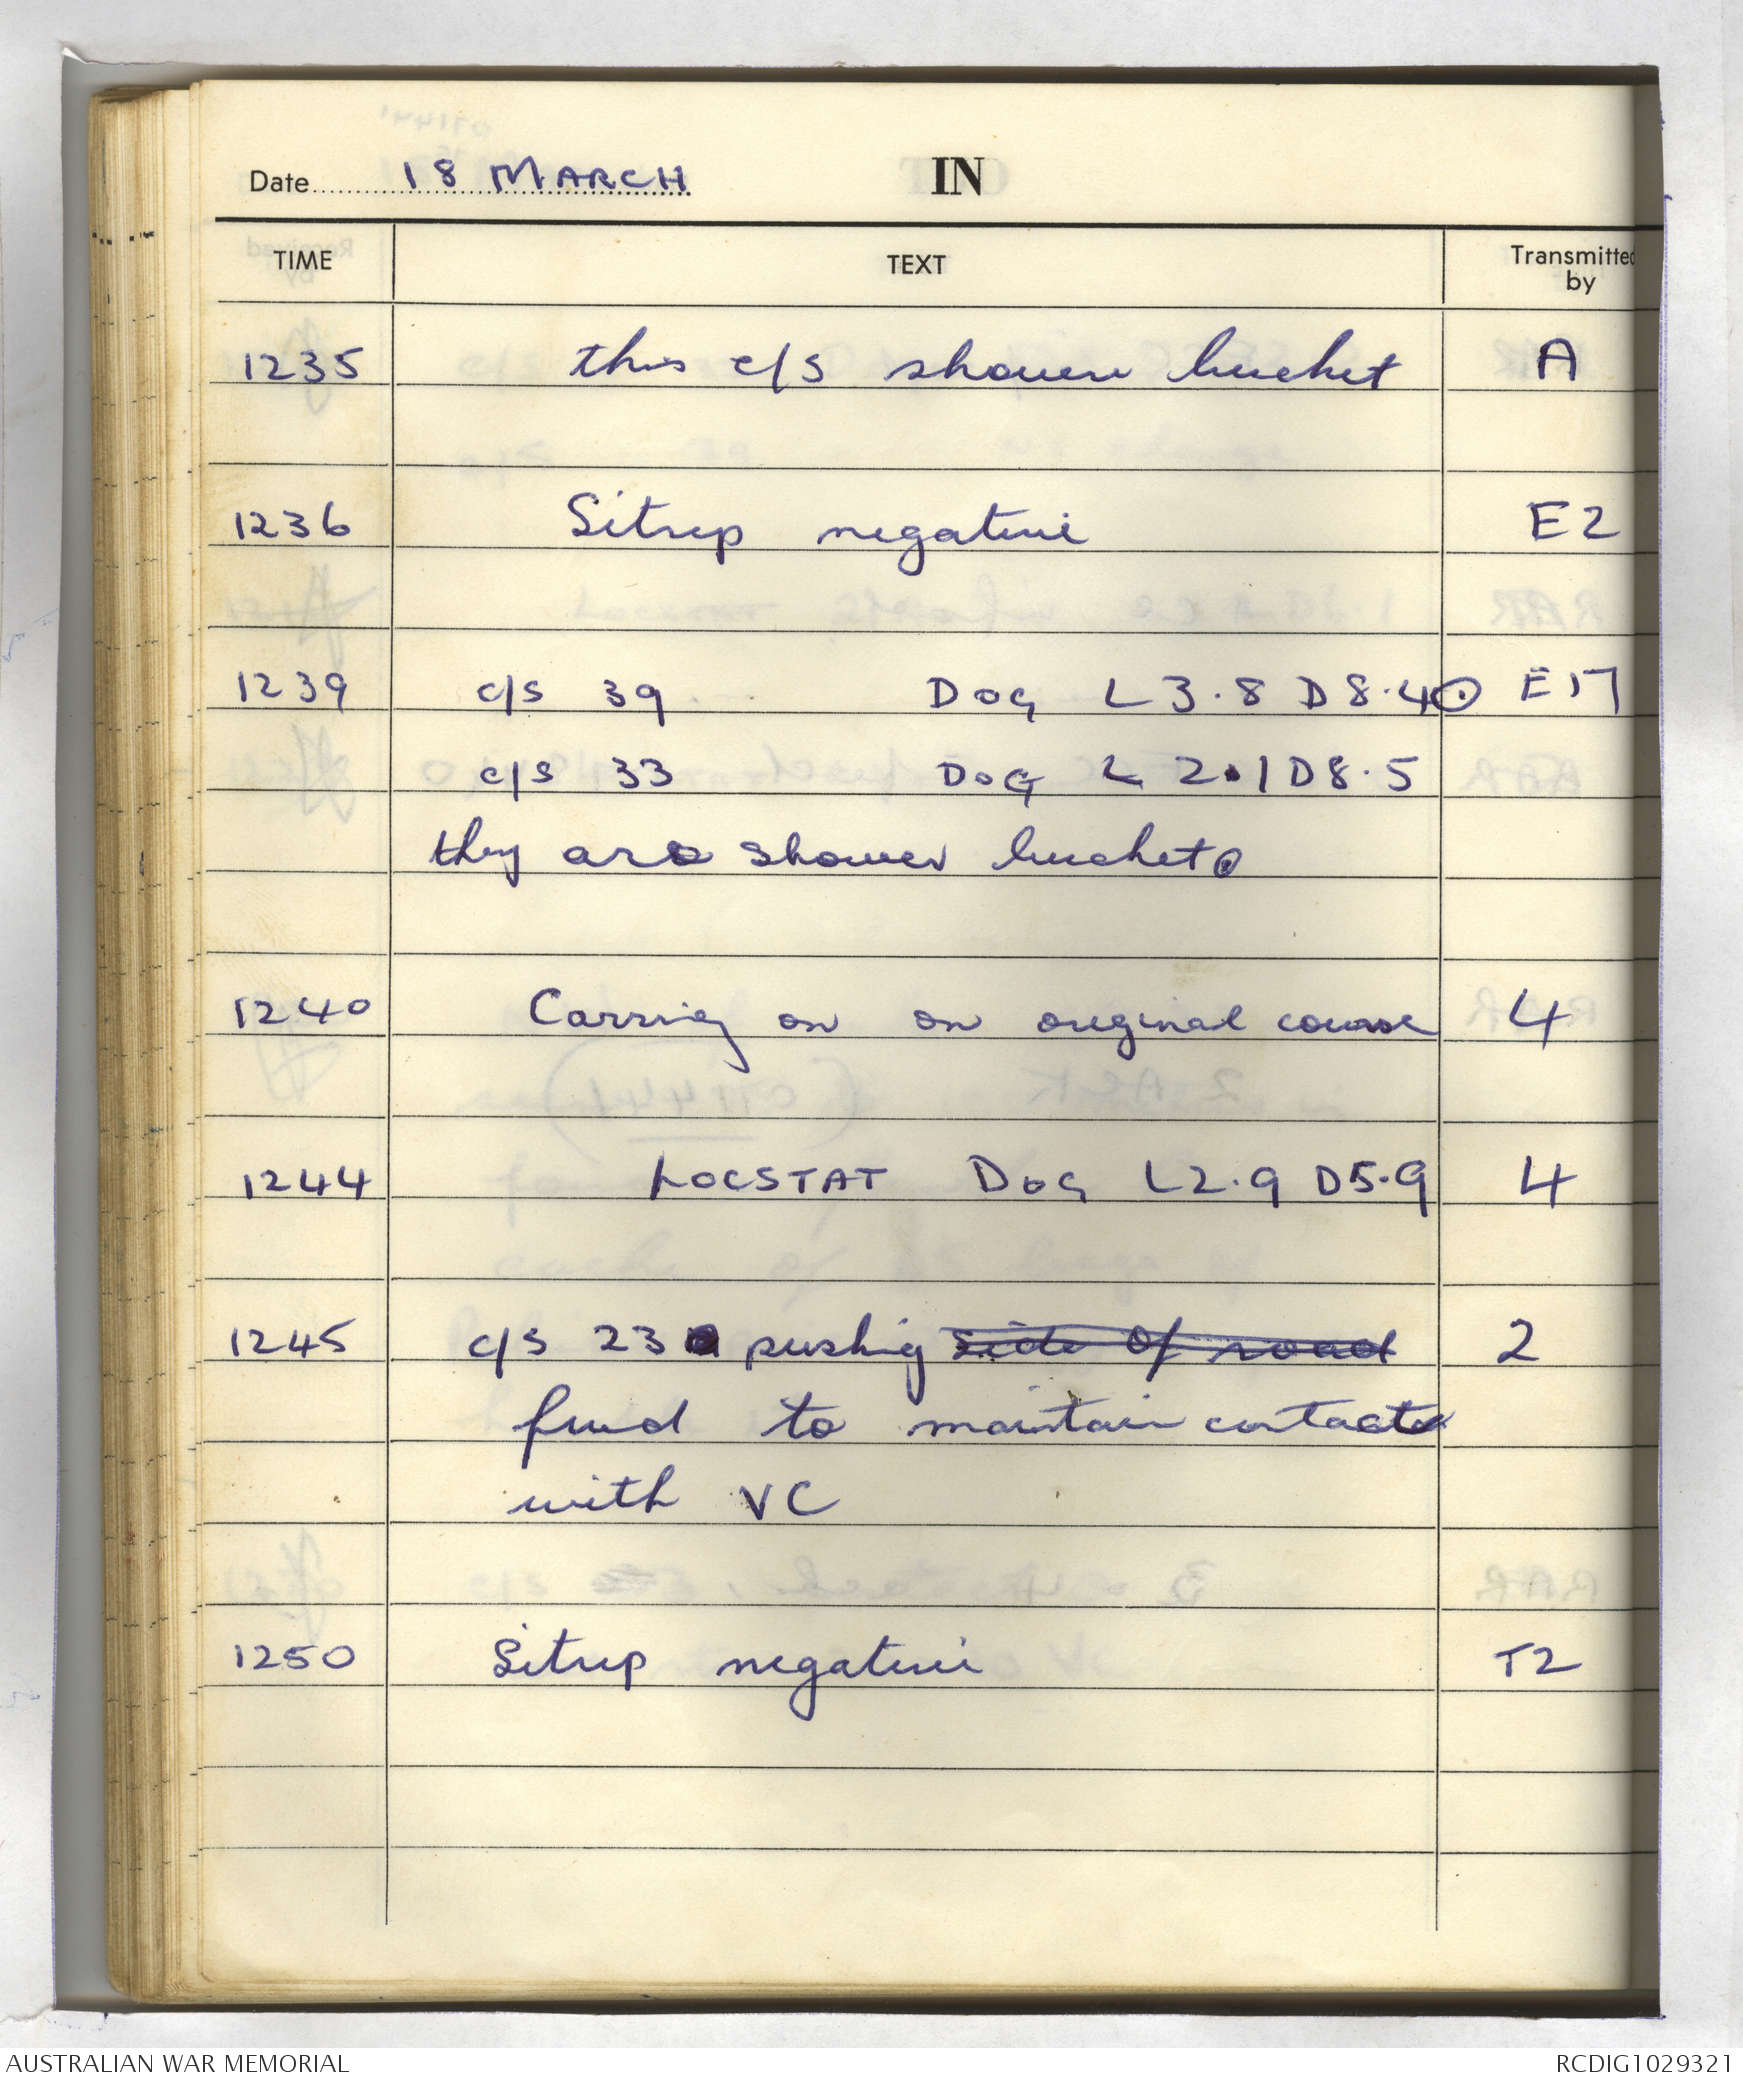 Date 18 MARCH IN
TIME TEXT Transmitted by
1235 this c/s shower bucket A
1236 Sitrep negative E2
1239 c/s 39 DOG L 3.8 D 8.4 E17
c/s 33 DOG L 2.1 D8.5
they are shower bucket
1240 Carring on on original course 4
1244 LOCSTAT DOG L2.9 D5.9 4
1245 c/s 23 pushig side of road 2
fwd to maintain contact
with VC
1250 Sitrep negative T2
AUSTRALIAN WAR MEMORIAL RCDIG1029321